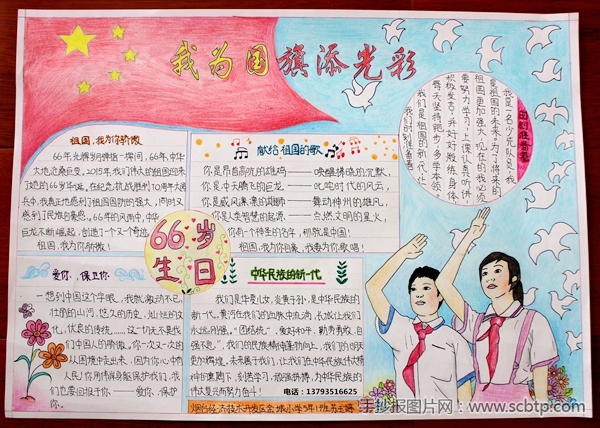 我为国旗添光彩
祖国,我为你骄傲
66年光辉岁月弹指一挥间,66年,中华
大地沧桑巨变,2015年,我们伟大的祖国迎来
了她的66岁华诞,在纪念抗战胜利70周年大阅
兵中,我真正地感到了祖国国防的强大,同时又
感到了民族自豪感,66年的风雨中,中华
巨龙不断崛起,创造了一个又一个奇迹
祖国,我为你骄傲!
献给祖国的歌
你是昂首高吭的雄鸡——唤醒拂晓的沉默,
你是冲天腾飞的巨龙——叱咤时代的风云,
你是威风凛凛的雄狮——舞动神州的雄风,
你是人类智慧的起源——点燃文明的星火,
你有一个神圣的名字,那就是中国!
祖国,我为你自豪,我要为你歌唱!
我是一名少先队员,我
是祖国的未来,为了将来的
祖国更加强大,现在的我必须
要努力学习,上课认真听讲,
积极发言,并好好锻炼身体,
每天坚持跑步,多学本领,
我们是祖国的新一代,让
我们时刻准备着
时刻准备着
66岁
生日
爱你、保卫你
一想到中国这个字眼,我就激动不已,
壮丽的山河,悠久的历史,灿烂的文
化,优良的传统……这一切无不是我
们中国人的骄傲,你一次又一次的
从困境中走出来,因为你心中有
人民,你用伟岸身躯保护我们,我
们也要回报于你——爱你、保护
你。
中华民族的新一代
我们是华夏儿女,炎黄子孙,是中华民族的
新一代,黄河在我们的血脉中流淌,长城让我们
永远刚强,“团结统一、爱好和平、勤劳勇敢、自
强不息”,我们的民族精神蓬勃向上,我们的明天
更加辉煌,未来属于我们,让我们在中华民族伟大精
神的熏陶下,刻苦学习,顽强拼搏,为中华民族的
伟大复兴而努力奋斗!
电话:13793516625
烟台经济技术开发区金城小学5年1班
手抄报图片网·www.scbtp.com